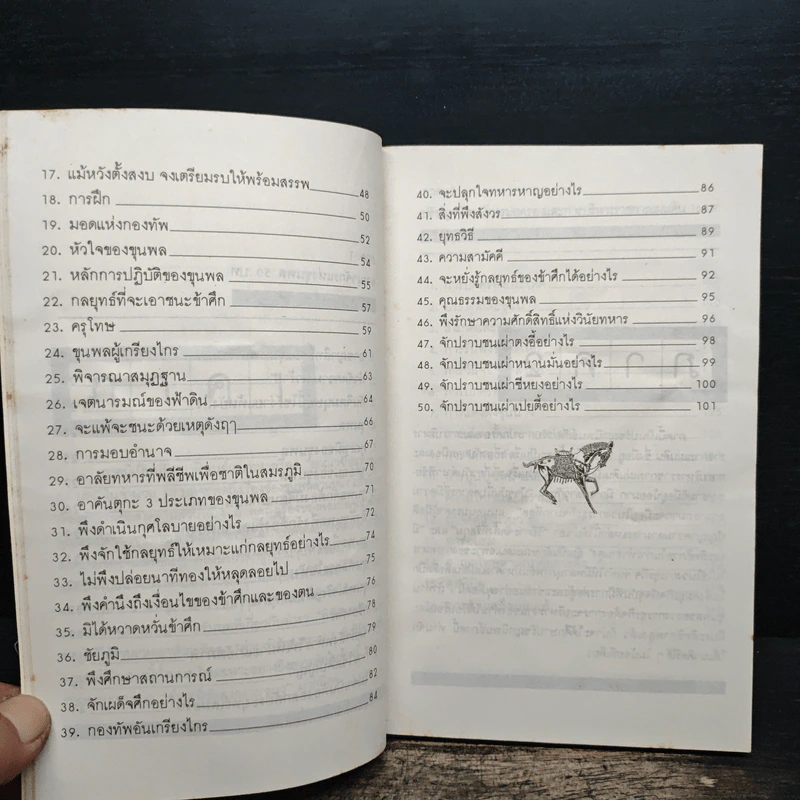 17. แม้หวังตั้งสงบ จงเตรียมรบให้พร้อมสรรพ 48
18. การฝึก 50
19. มอดแห่งกองทัพ 52
20. หัวใจของขุนพล 54
21. หลักการปฏิบัติของขุนพล 55
22. กลยุทธ์ที่จะเอาชนะข้าศึก 57
23. ครุโทษ 59
24. ขุนพลผู้เกรียงไกร 61
25. พิจารณาสมุฏฐาน 63
26. เจตนารมณ์ของฟ้าดิน 64
27. จะแพ้จะชนะด้วยเหตุดังฤๅ 66
28. การมอบอำนาจ 67
29. อาลัยทหารที่พลีชีพเพื่อชาติในสมรภูมิ 70
30. อาคันตุกะ 3 ประเภทของขุนพล 71
31. พึงดำเนินกุศโลบายอย่างไร 72
32. พึงจักใช้กลยุทธ์ให้เหมาะแก่กลยุทธ์อย่างไร 74
33. ไม่พึงปล่อยนาทีทองให้หลุดลอยไป 75
34. พึงคำนึงถึงเงื่อนไขของข้าศึกและของตน 76
35. มิได้หวาดหวั่นข้าศึก 78
36. ชัยภูมิ 79
37. พึงศึกษาสถานการณ์ 80
38. จักเผด็จศึกอย่างไร 82
39. กองทัพอันเกรียงไกร 84
40. จะปลุกใจทหารหาญอย่างไร 86
41. สิ่งที่พึงสังวร 87
42. ยุทธวิธี 89
43. ความสามัคคี 91
44. จะหยั่งรู้กลยุทธ์ของข้าศึกได้อย่างไร 92
45. คุณธรรมของขุนพล 95
46. พึงรักษาความศักดิ์สิทธิ์แห่งวินัยทหาร 96
47. จักปราบชนเผ่าตงอี้อย่างไร 98
48. จักปราบชนเผ่าหนานมั่นอย่างไร 99
49. จักปราบชนเผ่าซีหยงอย่างไร 100
50. จักปราบชนเผ่าเปยตี้อย่างไร 101